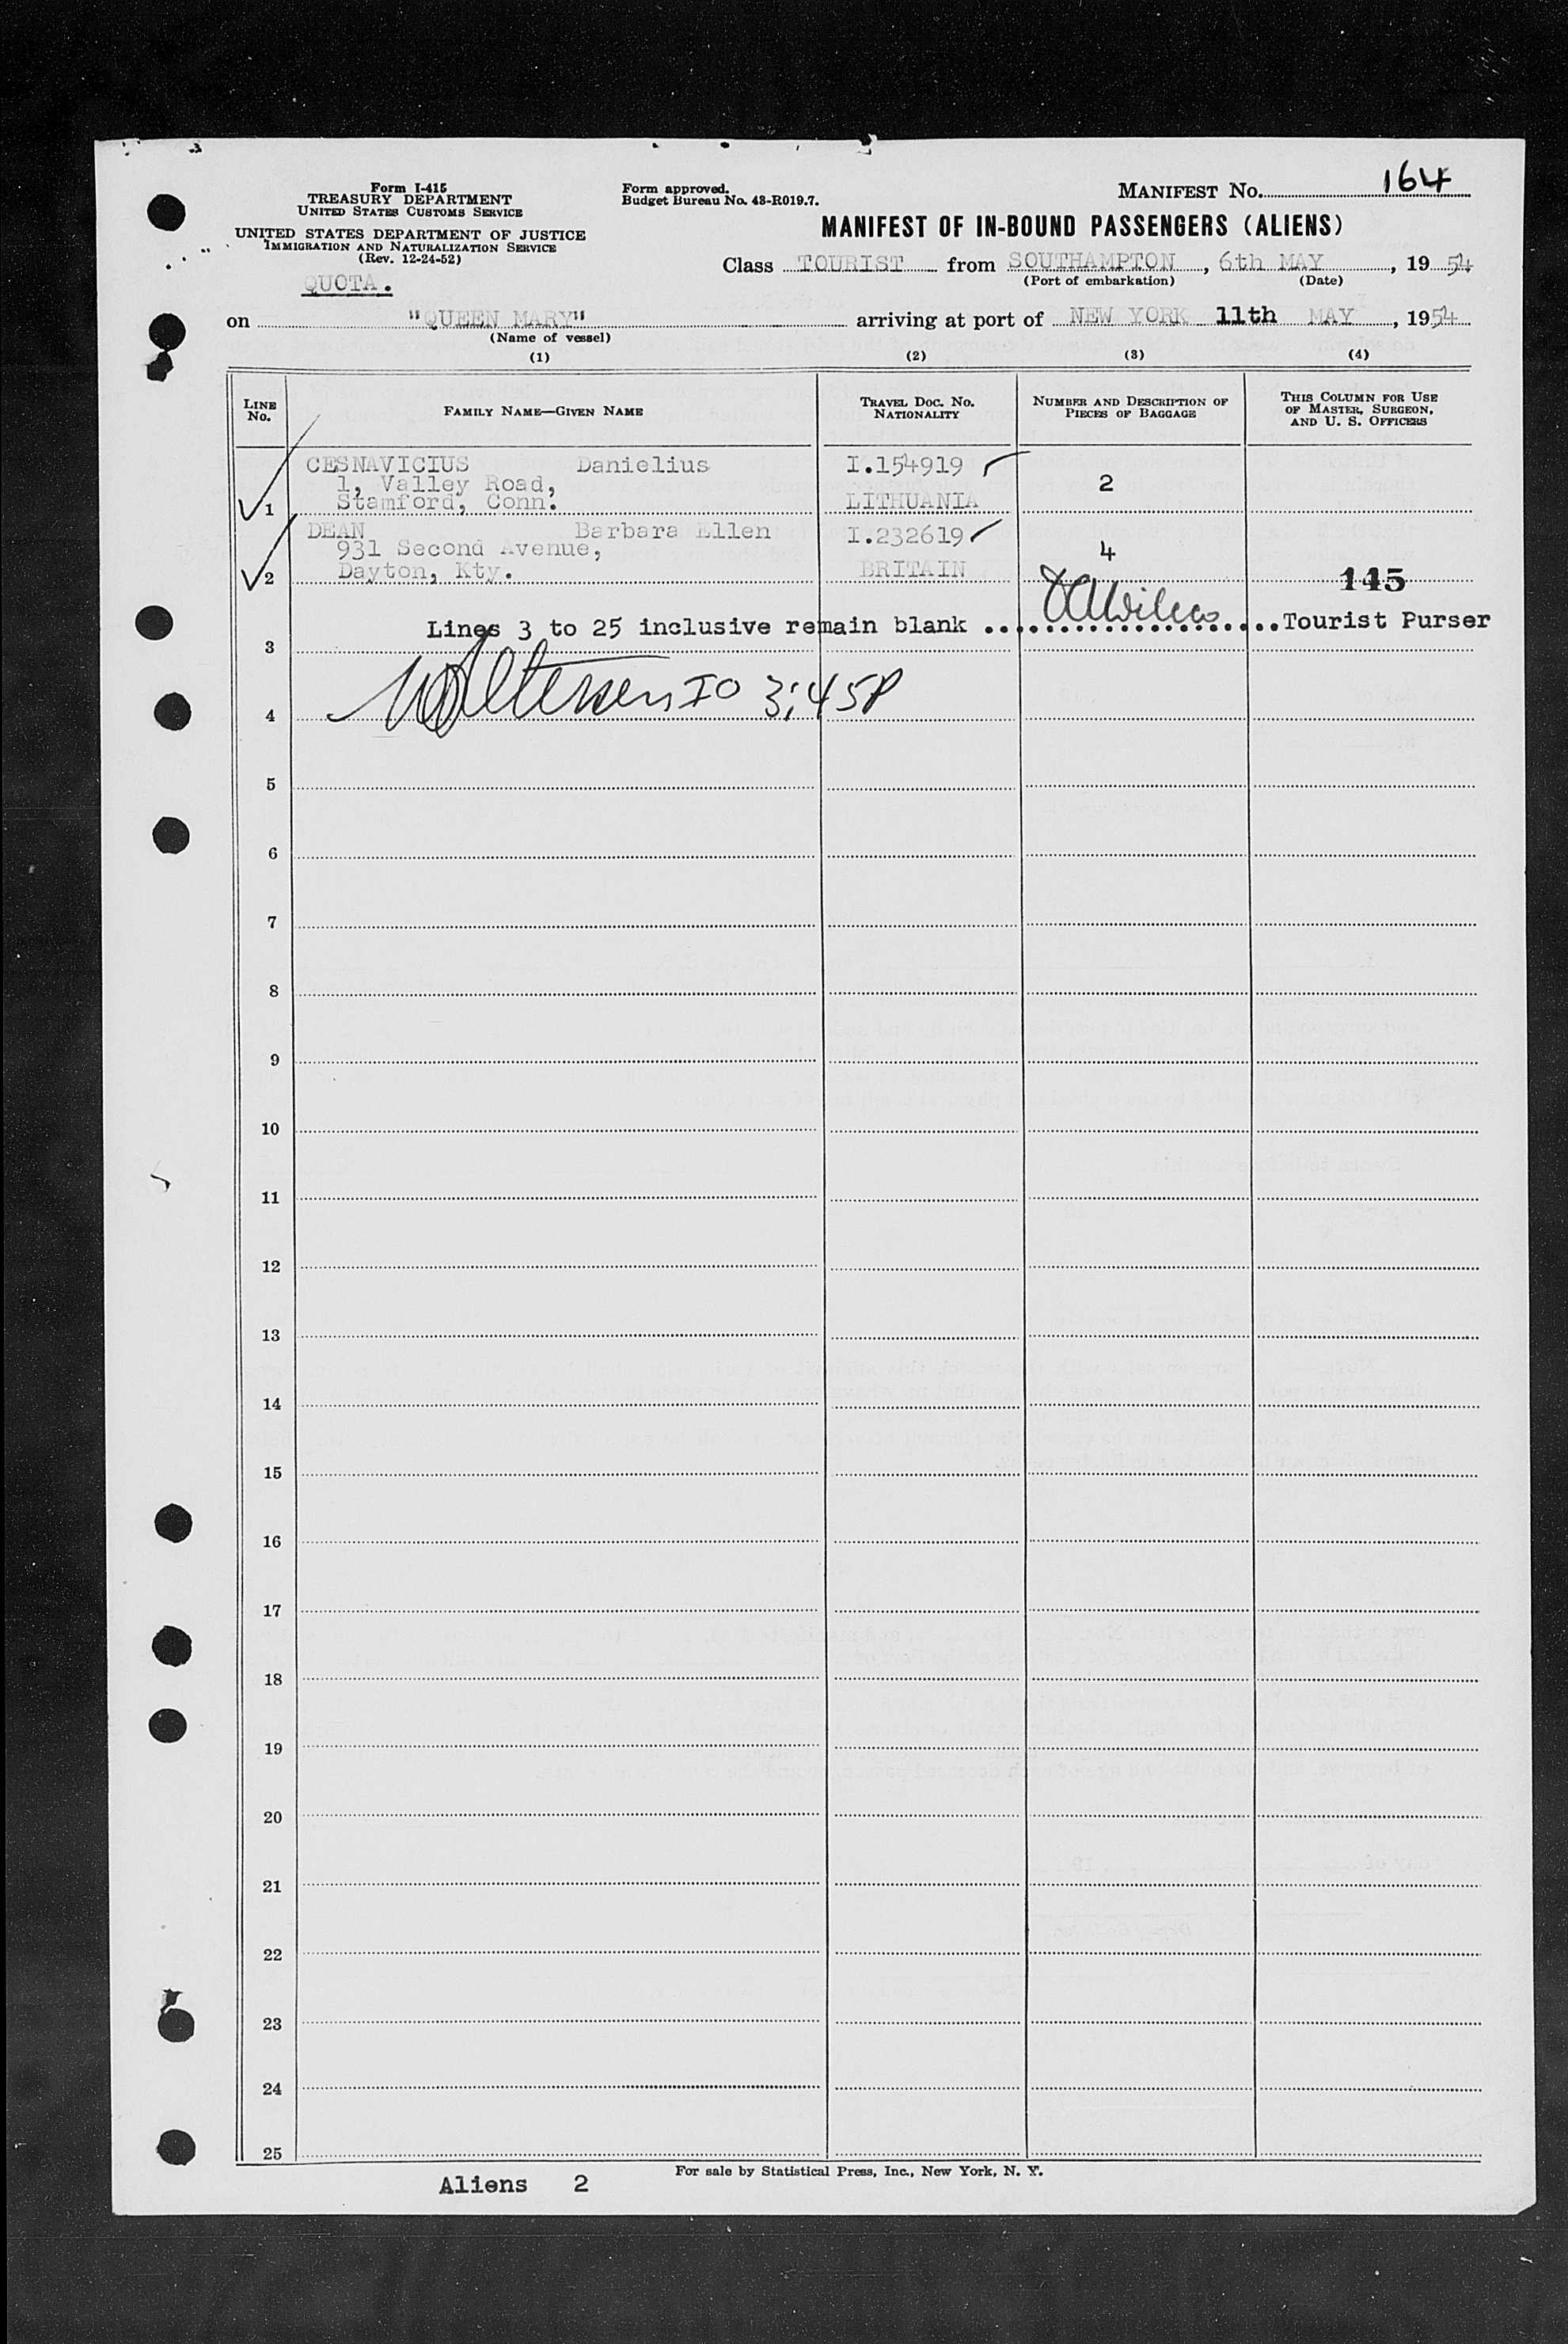 Form I-415
TREASURY DEPARTMENT
UNITED STATES CUSTOMS SERVICE
UNITED STATES DEPARTMENT OF JUSTICE
IMMIGRATION AND NATURALIZATION SERVICE
(Rev. 12-24-52)
QUOTA.
Form approved.
Budget Bureau No. 43-R019.7.
MANIFEST NO. 164
MANIFEST OF IN-BOUND PASSENGERS (ALIENS)
Class TOURIST from SOUTHAMPTON, 6th MAY, 19 54
(Port of embarkation) (Date)
on "QUEEN MARY" arriving at port of NEW YORK 11th MAY, 1954
(Name of vessel)
(1) (2) (3) (4)
LINE NO.
FAMILY NAME—GIVEN NAME
TRAVEL DOC. NO. NATIONALITY
NUMBER AND DESCRIPTION OF PIECES OF BAGGAGE
THIS COLUMN FOR USE OF MASTER, SURGEON, AND U. S. OFFICERS
CESNAVICIUS Danielius I.154919
1, Valley Road, 2
1 Stamford, Conn. LITHUANIA
DEAN Barbara Ellen I.232619
931 Second Avenue, 4
2 Dayton, Kty. BRITAIN 145
Lines 3 to 25 inclusive remain blank Tourist Purser
3
IO 3:45P
4
5
6
7
8
9
10
11
12
13
14
15
16
17
18
19
20
21
22
23
24
25
For sale by Statistical Press, Inc., New York, N. Y.
Aliens 2